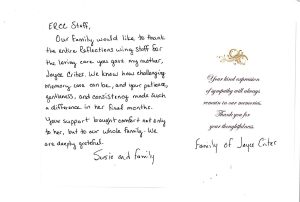 ERCC Staff,
Our Family would like to thank
the entire Reflections wing staff for
the loving care you gave my mother,
Joyce Criter. We know how challenging
memory care can be, and your patience,
gentleness, and consistency made such
a difference in her final months.
Your support brought comfort not only
to her, but to our whole family. We
are deeply grateful.
Susie and family
Your kind expression
of sympathy will always
remain in our memories.
Thank you for
your thoughtfulness.
Family of Joyce Criter